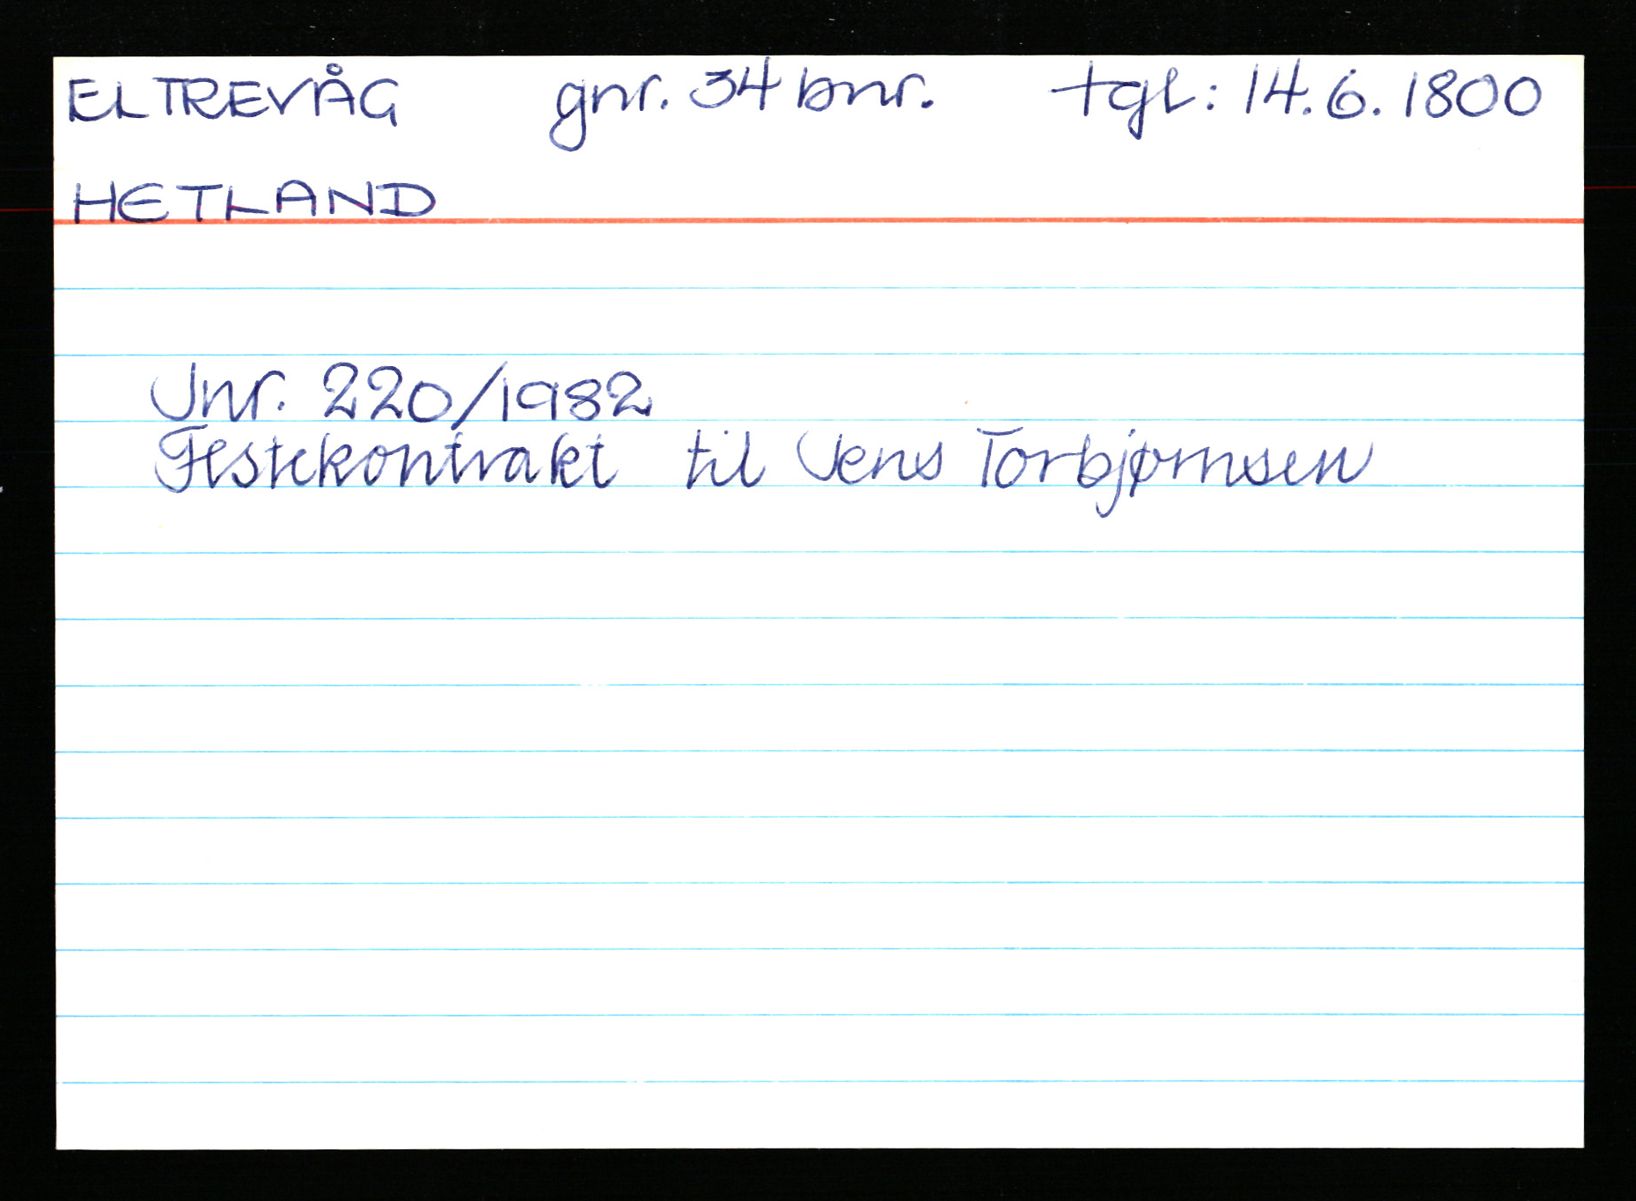 ELTREVÅG gnr. 34 bnr. tgl: 14.6.1800
HETLAND
Jnr. 220/1982
Festekontrakt til Jens Torbjørnsen